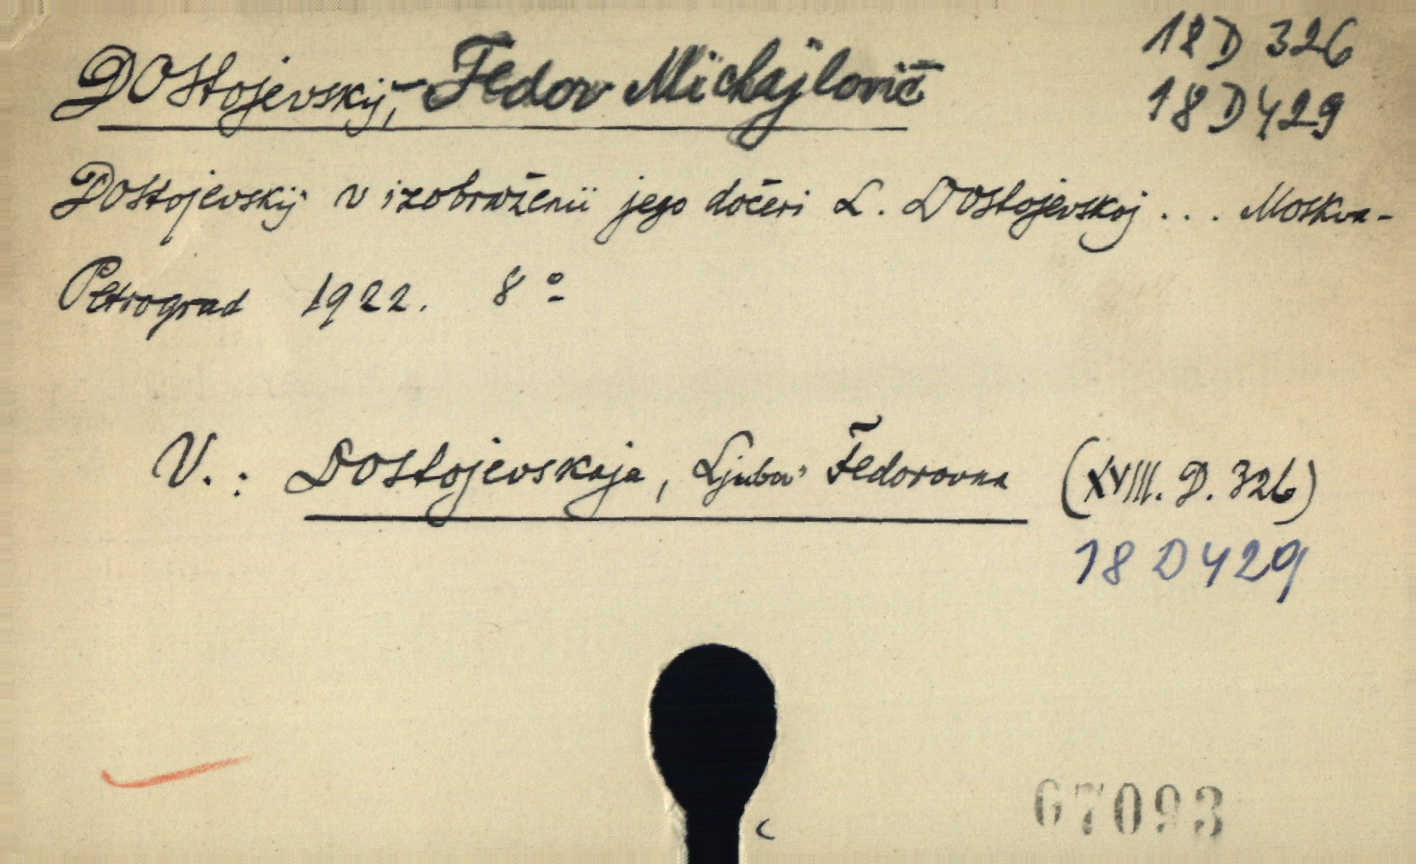 18 D 326
Dostojevskij, Fedor Michajlovič
18 D 429
Dostojevskij v izobraženii jego dočeri L. Dostojevskoj ... Moskva-
Petrograd 1922. 8º
V.: Dostojevskaja, Ljubov' Fedorovna (XVIII. D. 326)
18 D 429
67093